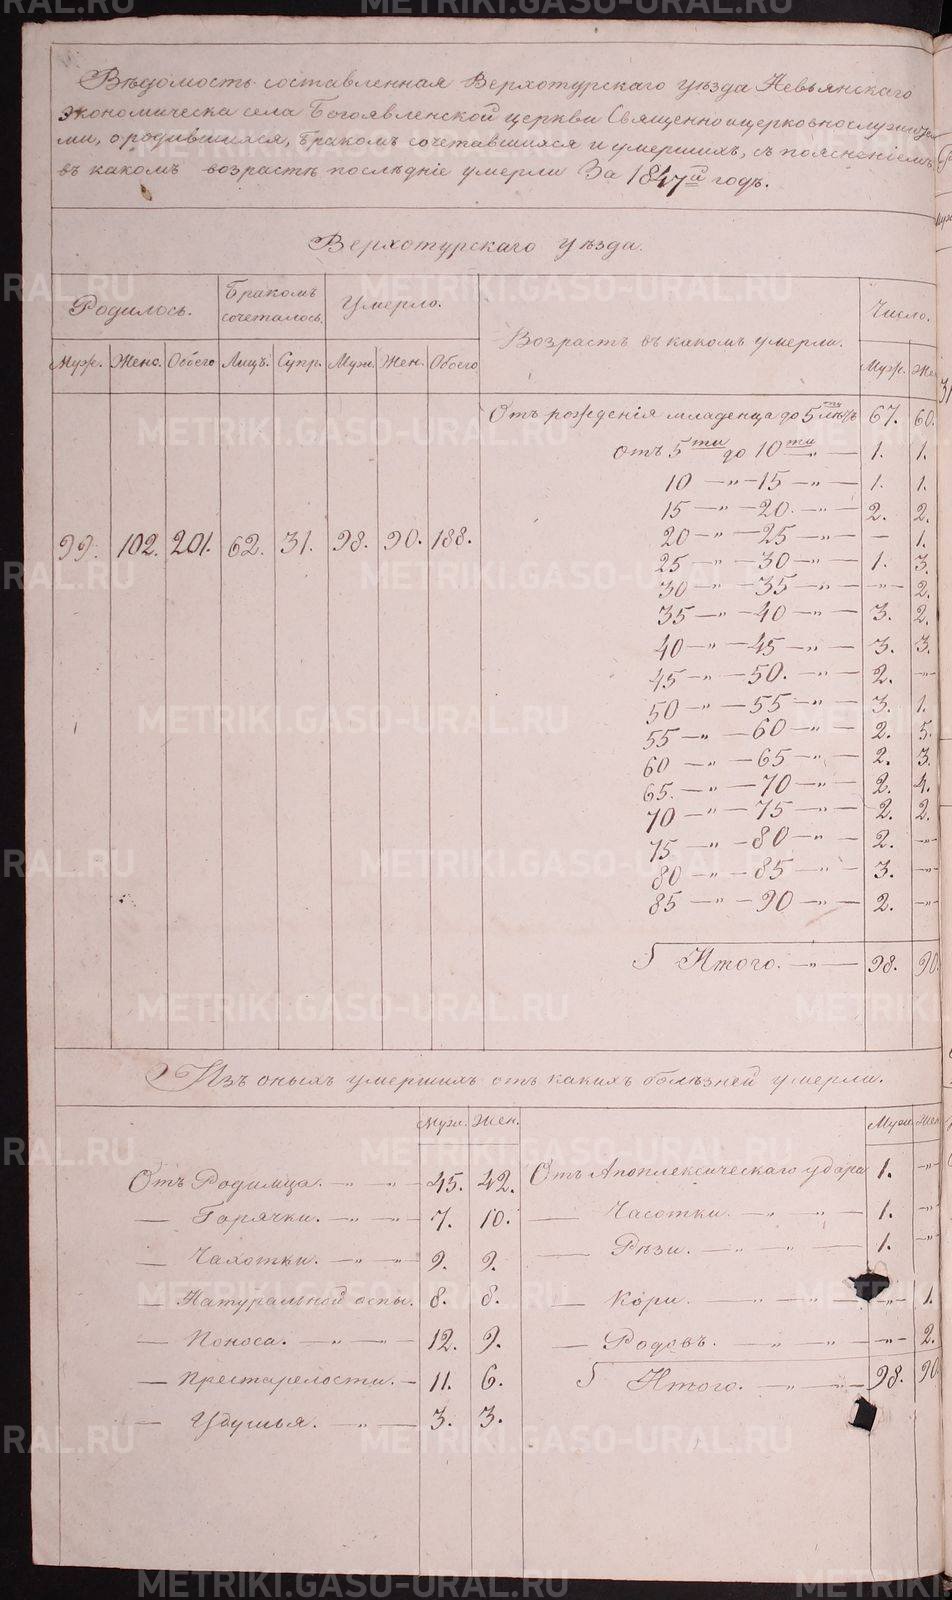 Вѣдомость составленная Верхотурскаго уѣзда Невьянскаго
экономическа села Богоявленской церкви Священноицерковнослужителя
ми, о родившихся, бракомъ сочетавшихся и умершихъ, съ поясненіемъ
въ какомъ возрастѣ послѣдніе умерли За 1847й годъ.
Верхотурскаго уѣзда.
Родилось. Бракомъ сочеталось. Умерло. Возрастъ въ какомъ умерли. Число.
Муж. Жено. Обоего Лицъ. Супр. Муж. Жен. Обоего Муж. Жен
99. 102. 201. 62. 31. 98. 90. 188.
Отъ рожденія младенца до 5ти лѣтъ 67. 60.
отъ 5ти до 10ти —"— 1. 1.
10 —"— 15 —"— 1. 1.
15 —"— 20. —"— 2. 2.
20 —"— 25 —"— — 1.
25 —"— 30 —"— 1. 3.
30 —"— 35 —"— —"— 2.
35 —"— 40 —"— 3. 2.
40 —"— 45 —"— 3. 3.
45 —"— 50. —"— 2. —"—
50 —"— 55 —"— 3. 1.
55 —"— 60 —"— 2. 5.
60 —"— 65 —"— 2. 3.
65. —"— 70 —"— 2. 4.
70 —"— 75 —"— 2. 2.
75 —"— 80 —"— 2. —"—
80 —"— 85 —"— 3. —"—
85 —"— 90 —"— 2. —"—
Итого. —"— 98. 90
Изъ оныхъ умершихъ отъ какихъ болѣзней умерли.
Муж. Жен. Муж. Жен
Отъ Родимца. —"—"— 45. 42. Отъ Апоплексическаго удара 1. —"—
— Горячки. —"—"— 7. 10. — Часотки. —"—"— 1. —"—
— Чахотки. —"—"— 9. 9. — Рѣзи. —"—"— 1. —"—
— Натуральной оспы. 8. 8. — Кори. —"—"— —"— 1.
— Поноса. —"—"— 12. 9. — Родовъ. —"—"— —"— 2.
— Престарелости. — 11. 6. Итого. —"—"— 98. 90
— Удушья. —"— 3. 3.
METRIKI.GASO-URAL.RU